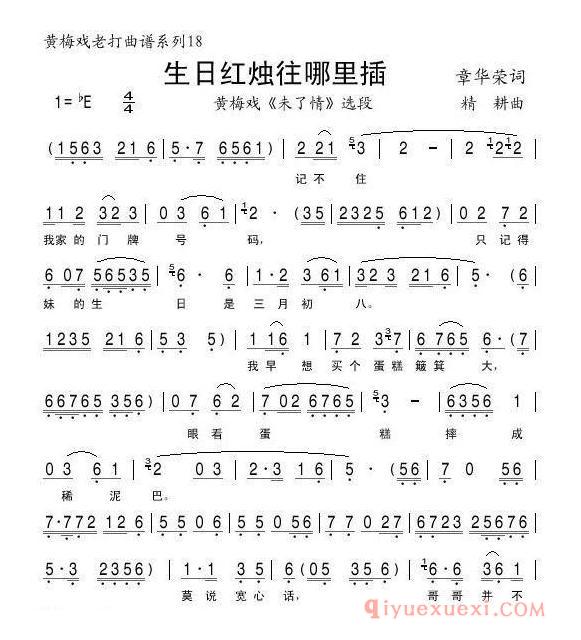 黄梅戏老打曲谱系列18
生日红烛往哪里插
章华荣词
1=♭E 4/4
黄梅戏《未了情》选段
精 耕曲
(1563 21 6 | 5·7 6561) | 2 21 53 | 2 - | 2 - | 1212 |
记不 住
11 2 32 3 | 0 3 6 1 | 12· (35 | 2325 612) | 0 2 7 2 |
我家的门牌 号 码, 只记得
6 07 56535 | 56· 6 | 1·2 361 | 332 321 6 | 5· (6 |
妹的生 日 是 三月初 八。
1235 21 6 | 53 5) | 1 16 1 | 72 2 337 | 6 765 6·(7 |
我早 想 买个蛋糕簸箕 大,
66765 356) | 07 62 | 702 6765 | 53 235 | 656 1 |
眼看蛋 糕 摔 成
03 61 | 32 03 | 2·3 16 | 5· (56 | 70 56 |
稀 泥巴。
7·772 126 | 5 5056 | 7·656 1207 | 6· 54 | 25676 |
5·3 2356) | 1·1 35 | 6 (05 356) | 16·6 36 | 1 2 |
莫说宽心话, 哥哥并不
qiyuexuexi.com